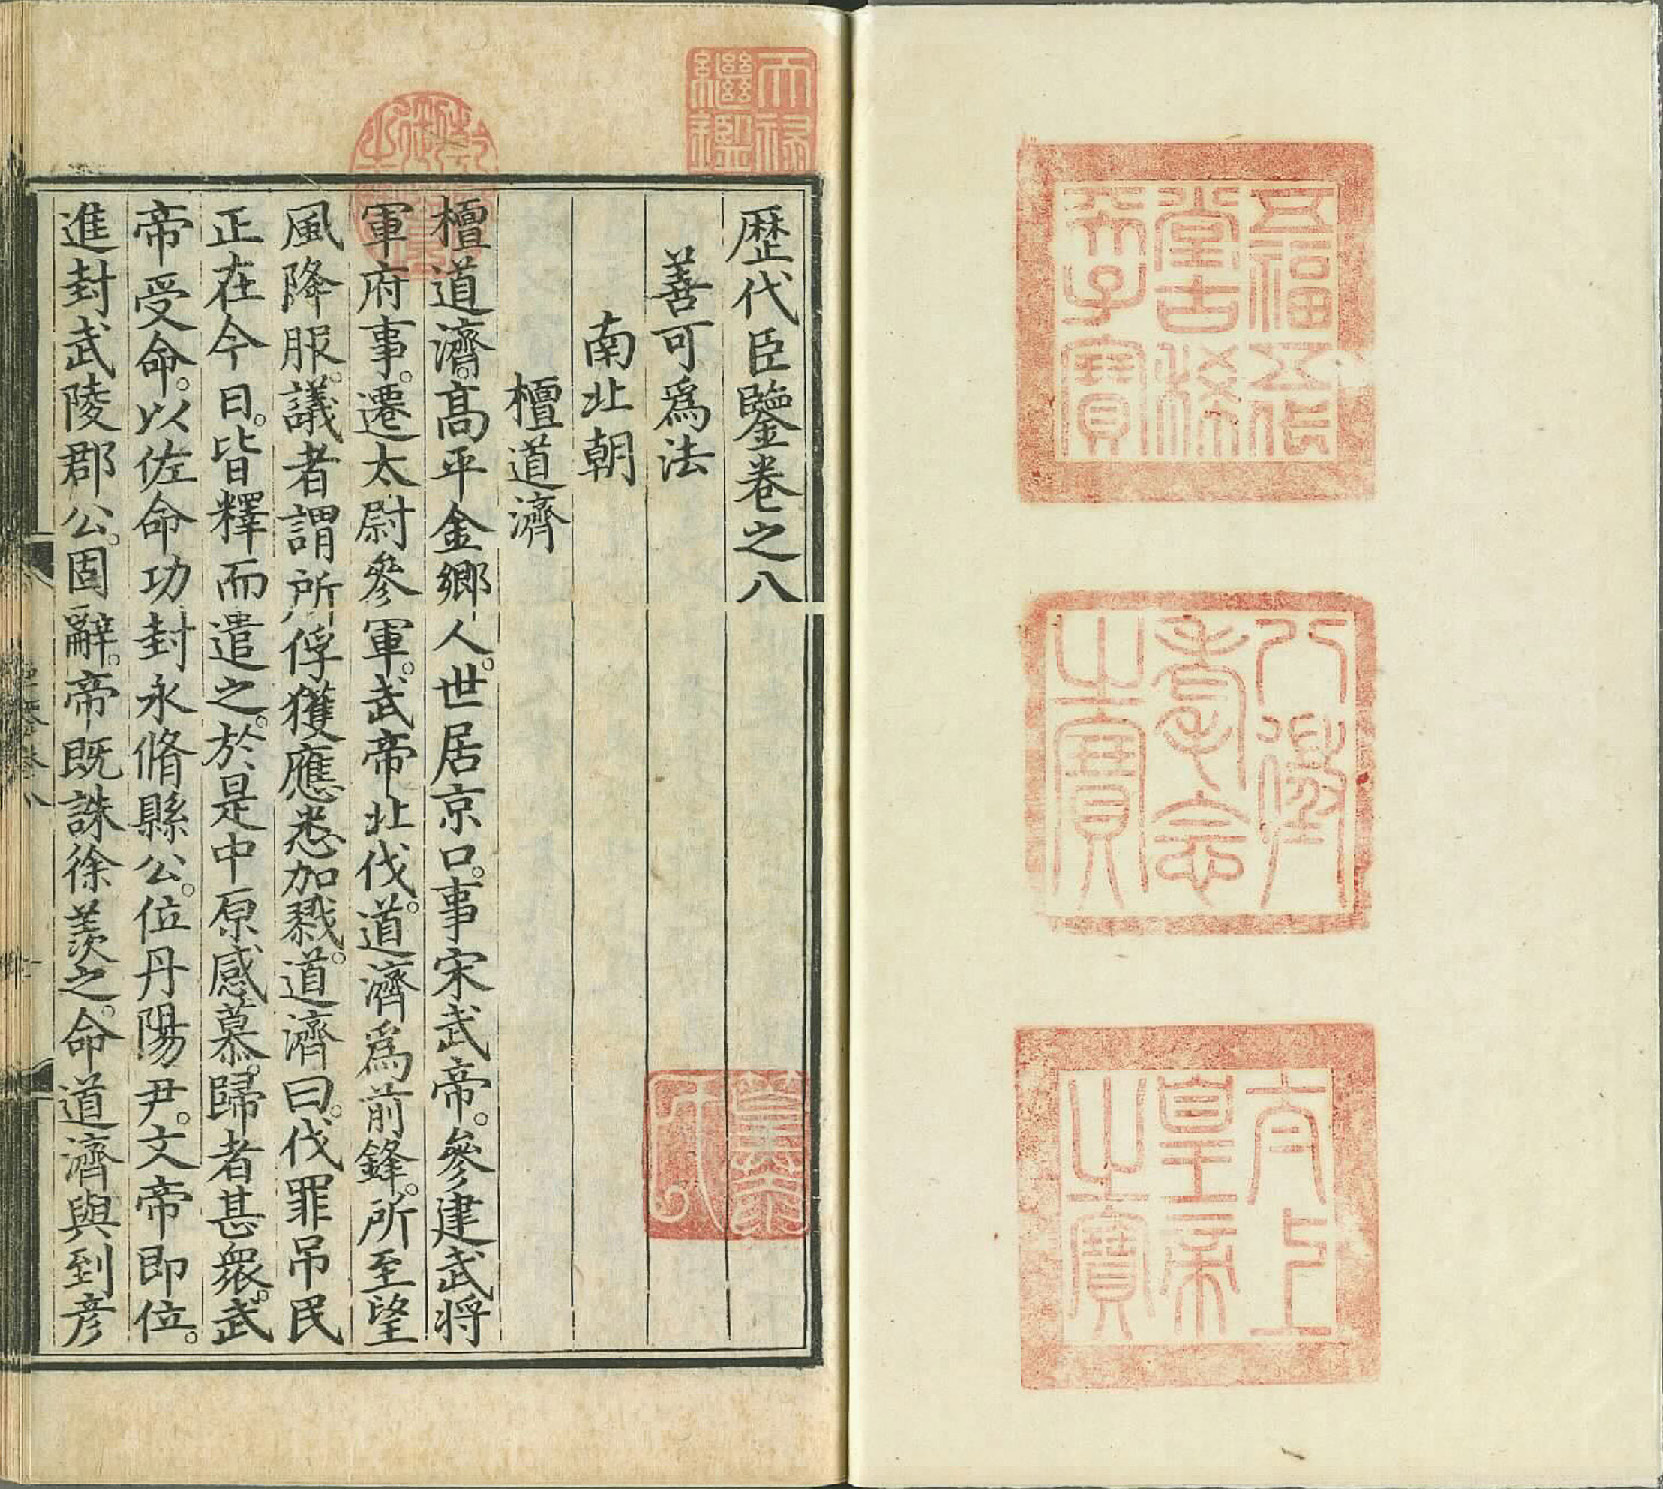 五福五代
堂古稀
天子寶
八徵
耄念
之寶
太上
皇帝
之寶
天祿
繼鑑
乾隆御覽之寶
歴代臣鑒卷之八
善可爲法
南北朝
檀道濟
檀道濟。髙平金鄉人。世居京口。事宋武帝。參建武将
軍府事。遷太尉參軍。武帝北伐。道濟爲前鋒。所至望
風降服。議者謂所俘獲應悉加戮。道濟曰。伐罪吊民
正在今日。皆釋而遣之。於是中原感慕。歸者甚衆。武
帝受命。以佐命功封永脩縣公。位丹陽尹。文帝即位。
進封武陵郡公。固辭。帝既誅徐羨之。命道濟與到彦